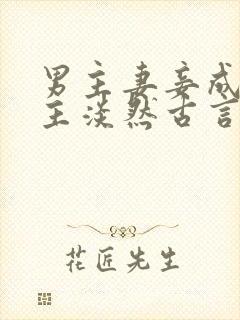 男主妻妾成
主淡然古言
花匠先生